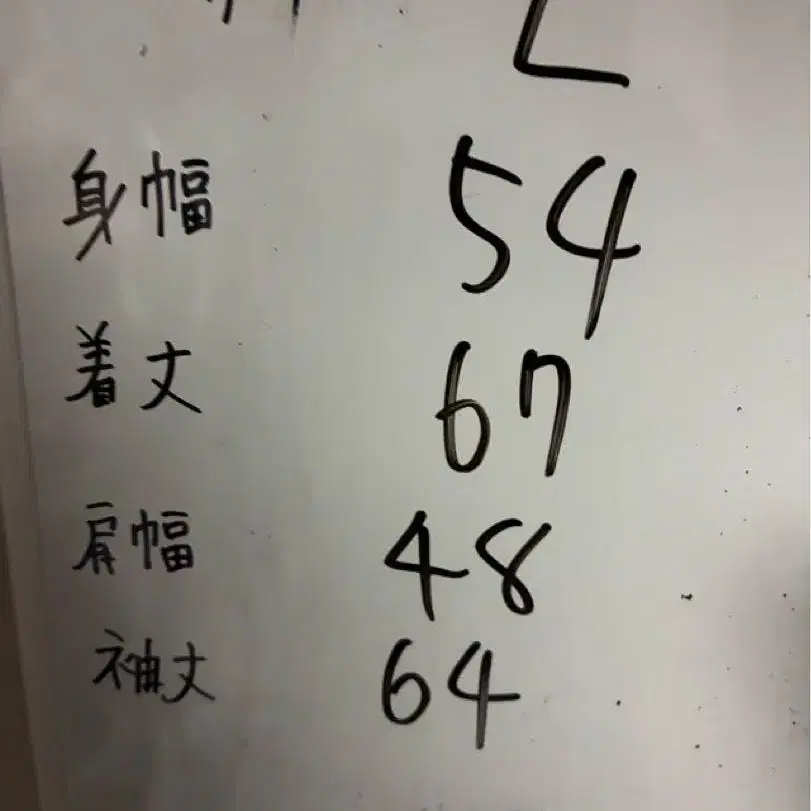 L
身幅 54
着丈 67
肩幅 48
袖丈 64